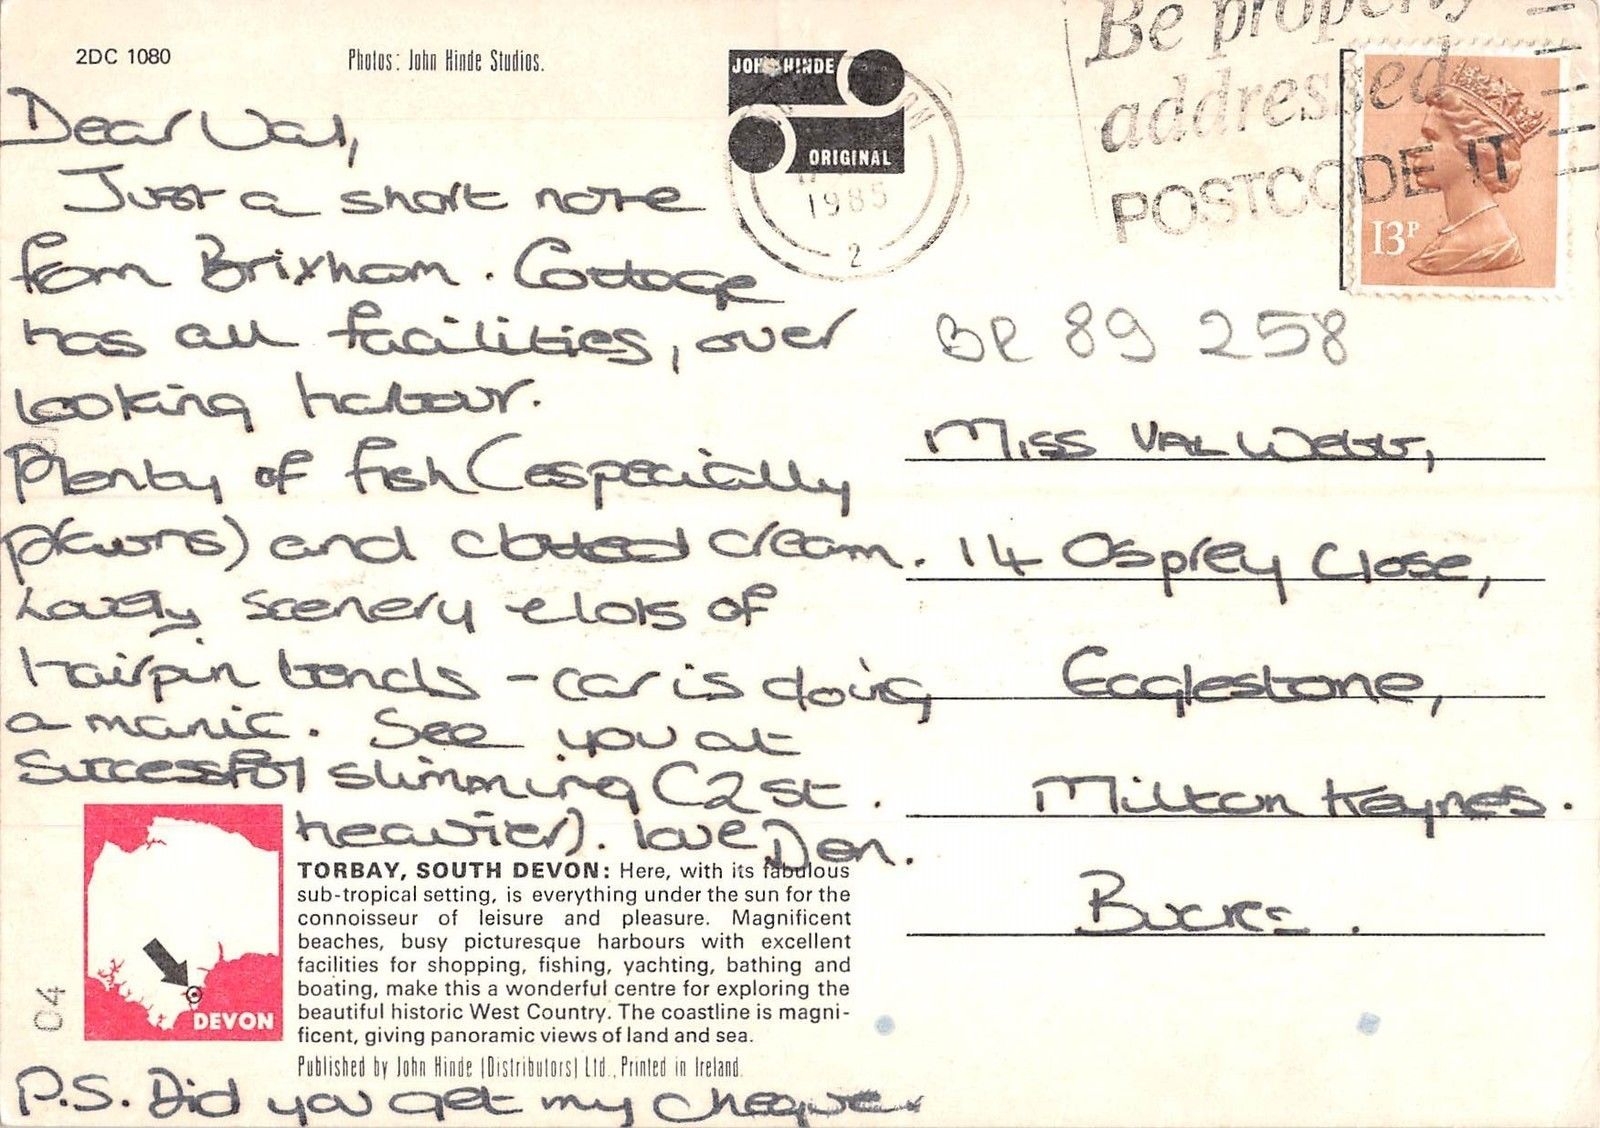 2DC 1080
Photos: John Hinde Studios.
JOHN HINDE
ORIGINAL
1985
2
Be properly
addressed
POSTCODE IT
13P
Dear Val,
Just a short note
from Brixham. Cottage
has all facilities, over
looking harbour.
Plenty of fish (especially
prawns) and clotted cream.
Lovely scenery & lots of
hairpin bends - car is doing
a manic. See you at
Successful slimming (2 st.
heavier). love Den.
BR 89 258
Miss Val Webb,
14 Osprey Close,
Eaglestone,
Milton Keynes.
Bucks.
DEVON
TORBAY, SOUTH DEVON: Here, with its fabulous
sub-tropical setting, is everything under the sun for the
connoisseur of leisure and pleasure. Magnificent
beaches, busy picturesque harbours with excellent
facilities for shopping, fishing, yachting, bathing and
boating, make this a wonderful centre for exploring the
beautiful historic West Country. The coastline is magni-
ficent, giving panoramic views of land and sea.
Published by John Hinde (Distributors) Ltd., Printed in Ireland.
04
P.S. Did you get my cheque.